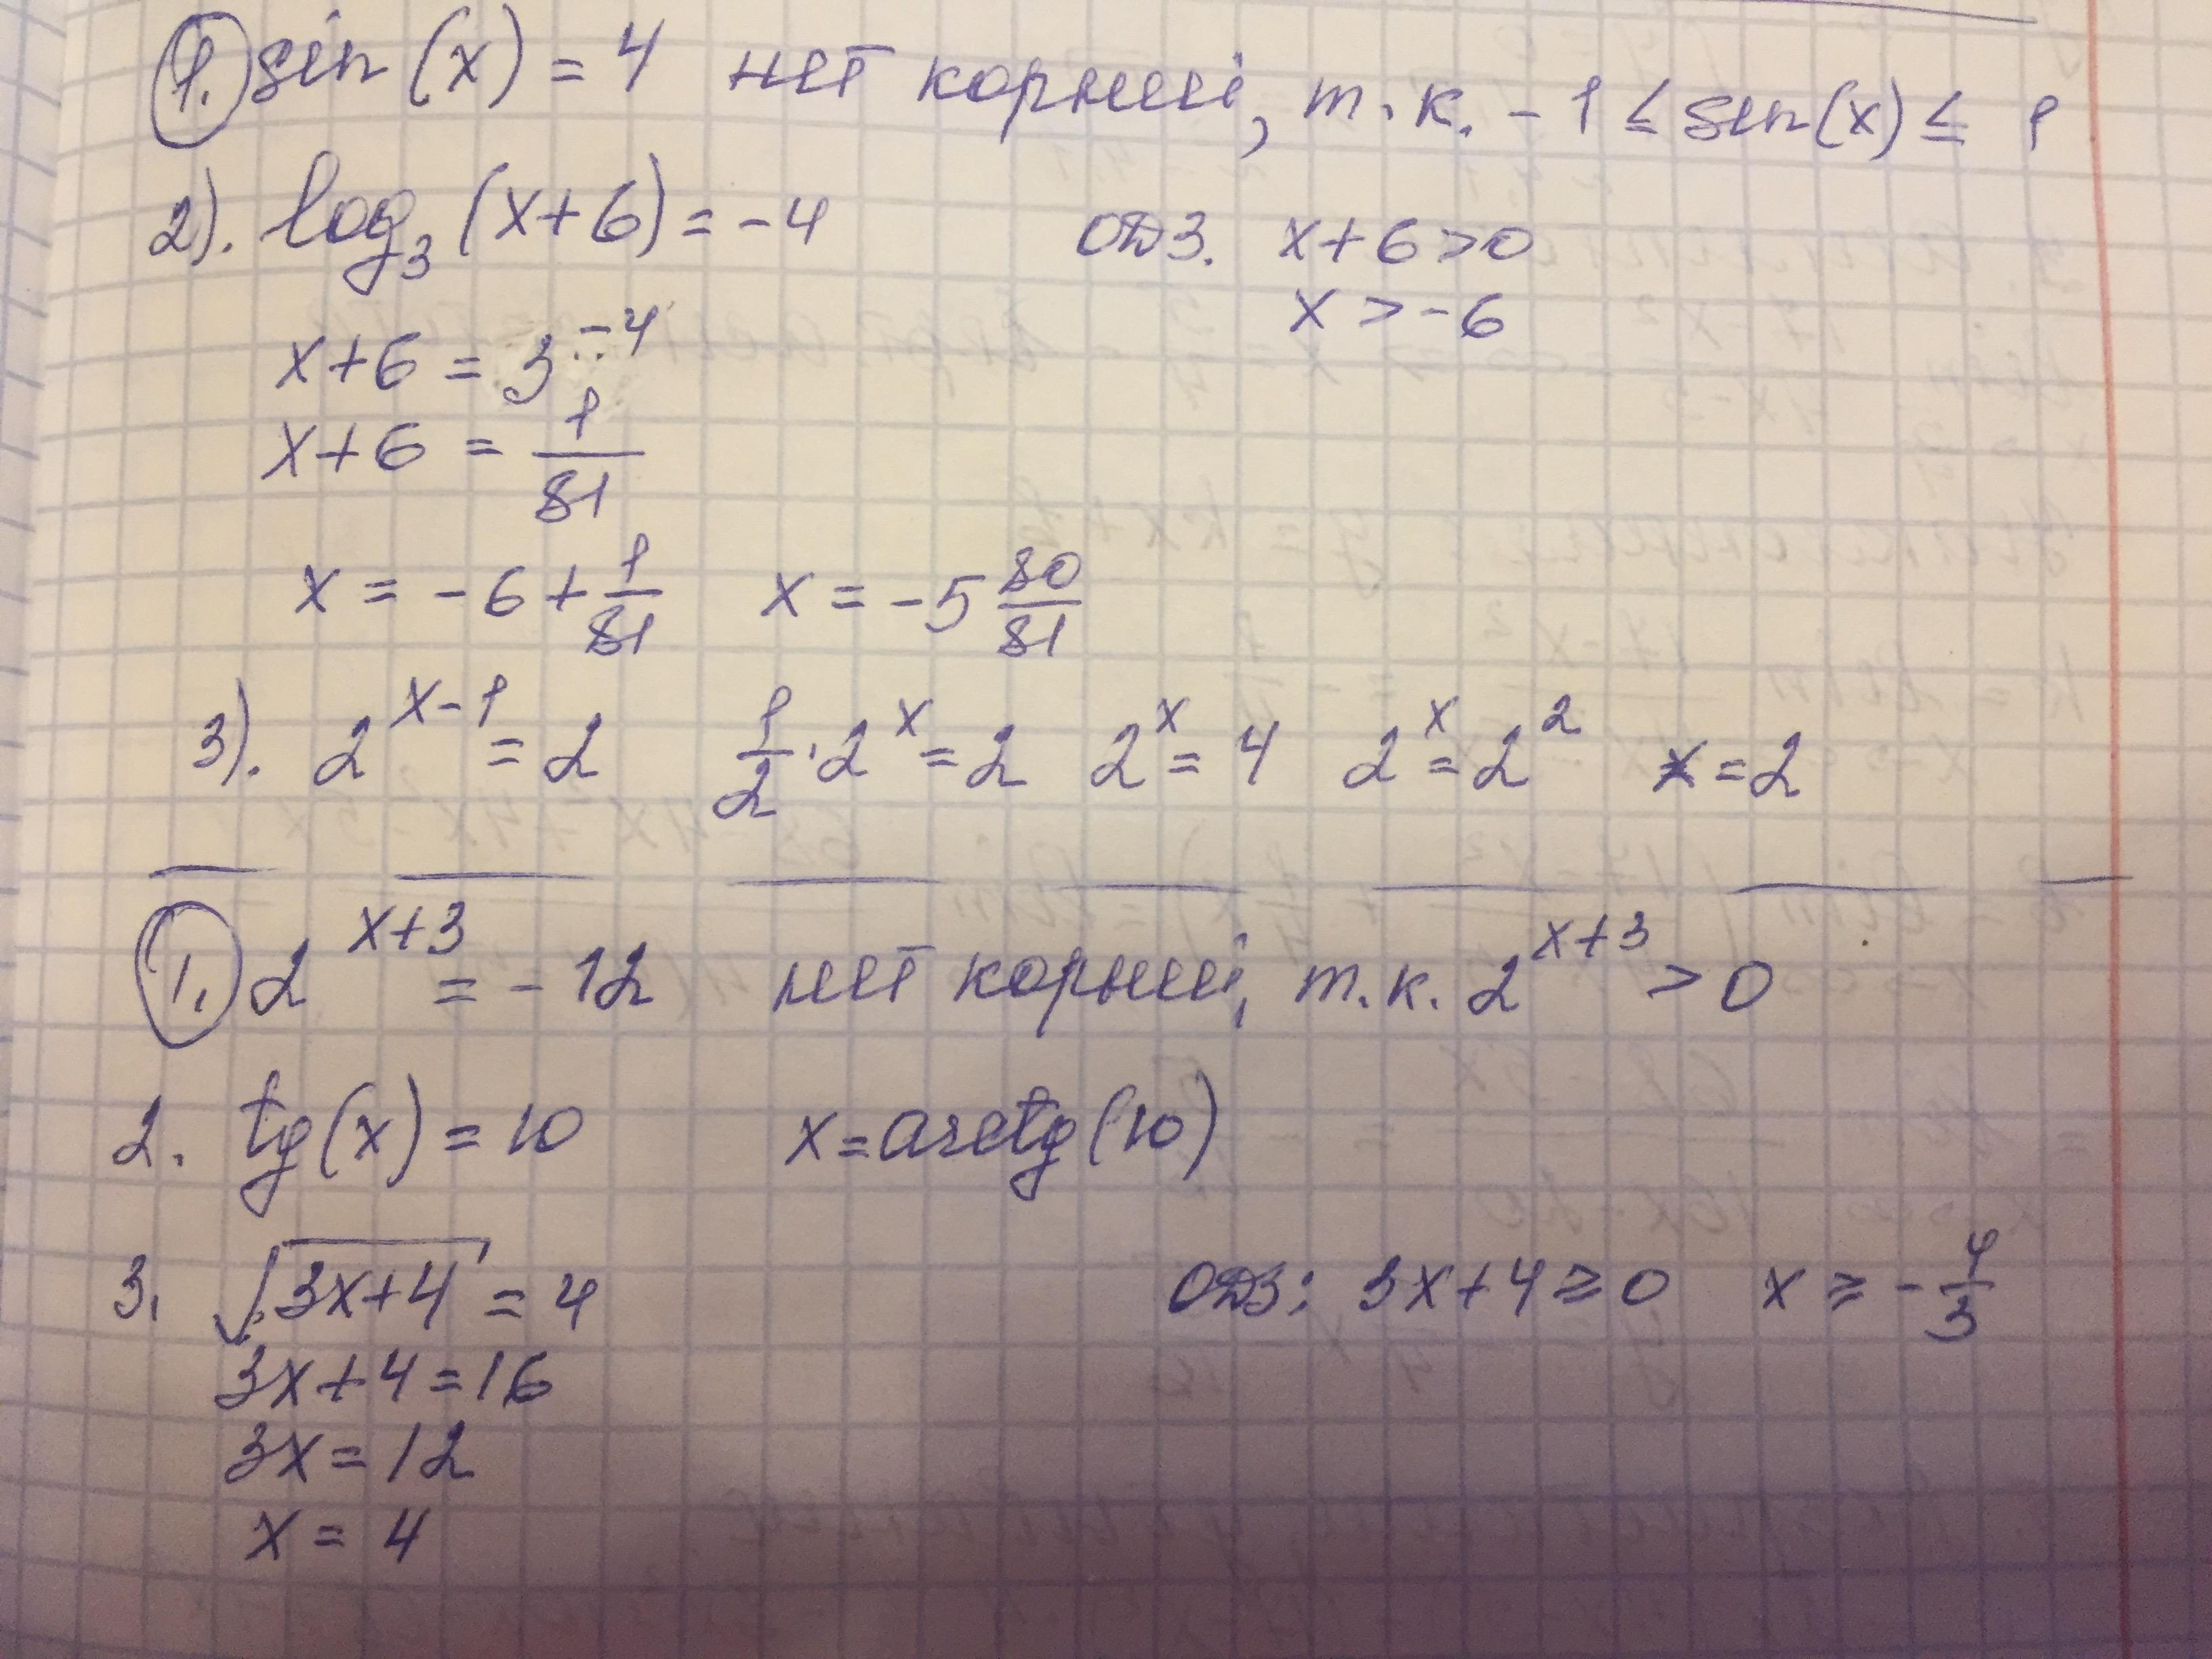 1. sin(x) = 4 нет корней, т.к. -1 ≤ sin(x) ≤ 1
2). log₃(x+6) = -4 ОДЗ. x+6 > 0
x > -6
x+6 = 3⁻⁴
x+6 = 1/81
x = -6 + 1/81 x = -5 80/81
3). 2^(x-1) = 2 1/2 · 2^x = 2 2^x = 4 2^x = 2² x = 2
1. 2^(x+3) = -12 нет корней, т.к. 2^(x+3) > 0
2. tg(x) = 10 x = arctg(10)
3. √(3x+4) = 4 ОДЗ: 3x+4 ≥ 0 x ≥ -4/3
3x+4 = 16
3x = 12
x = 4